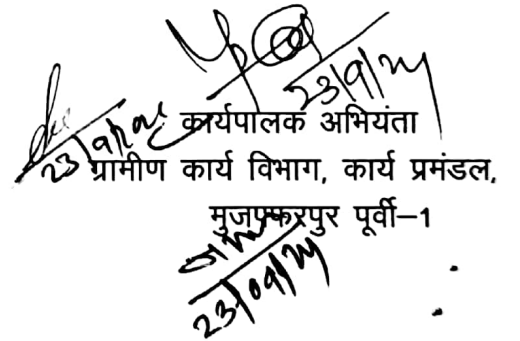 23/9/24
23/9/24
कार्यपालक अभियंता
ग्रामीण कार्य विभाग, कार्य प्रमंडल,
मुजफ्फरपुर पूर्वी–1
23/09/24